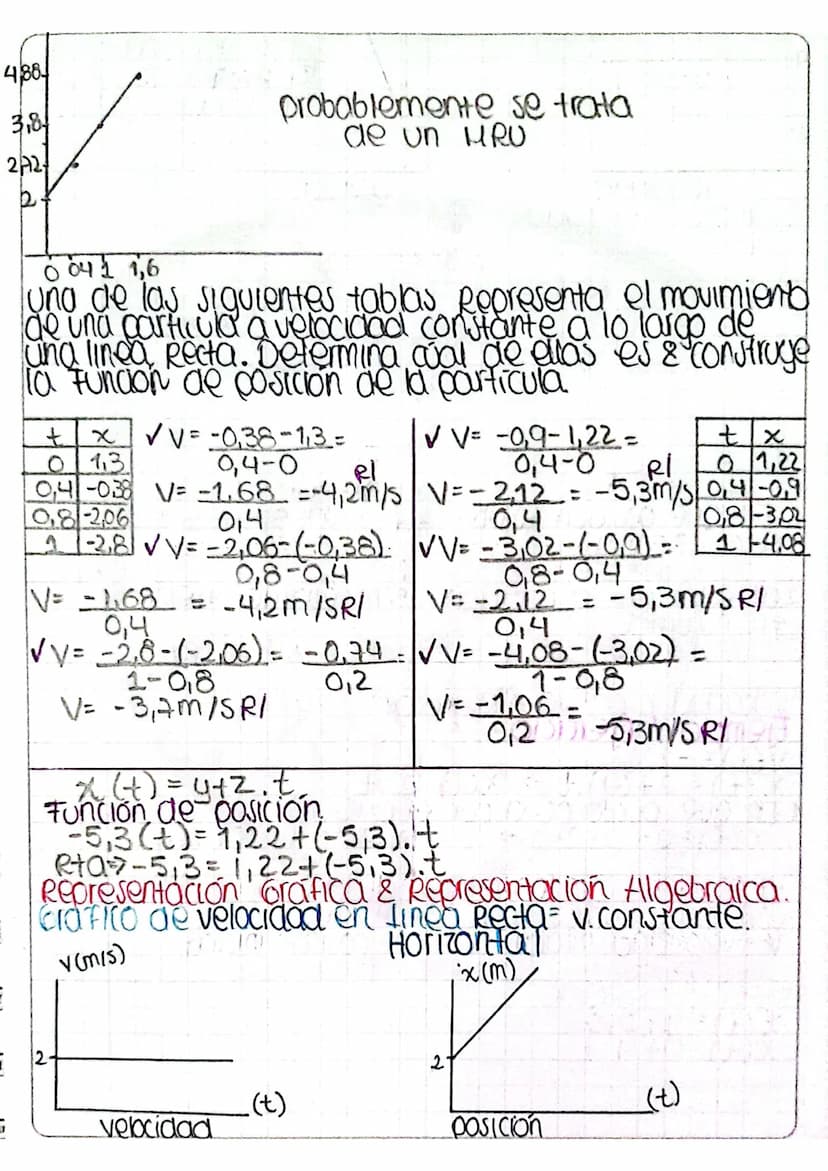 4,88
3,8
2,72
2
0 0,4 1 1,6
probablemente se trata
de un MRU
una de las siguientes tablas Representa el movimiento
de una partícula a velocidad constante a lo largo de
una linea Recta. Determina cúal de ellas es & construye
la función de posición de la partícula
t x
0 1,3
0,4 -0,38
0,8 -2,06
1 -2,8
✓ V= -0,38-1,3 =
0,4-0
V= -1,68 =-4,2m/s R/
0,4
✓ V= -2,06-(-0,38)
0,8-0,4
V= -1,68 = -4,2m/s R/
0,4
✓ V= -2,8-(-2,06) = -0,74 =
1-0,8 0,2
V= -3,7m/s R/
✓ V= -0,9-1,22 =
0,4-0
V=-2,12 = -5,3m/s R/
0,4
✓ V= -3,02-(-0,9) =
0,8-0,4
V= -2,12 = -5,3m/s R/
0,4
✓ V= -4,08-(-3,02) =
1-0,8
V= -1,06 = -5,3m/s R/
0,2
t x
0 1,22
0,4 -0,9
0,8 -3,02
1 -4,08
x(t)=y+z.t
Función de posición
-5,3(t)=1,22+(-5,3).t
Rta⇒-5,3=1,22+(-5,3).t
Representación Gráfica & Representación Algebraica.
Gráfico de velocidad en linea Recta= v.constante.
Horizontal
v(m/s)
2
(t)
velocidad
x(m)
2
(t)
posición